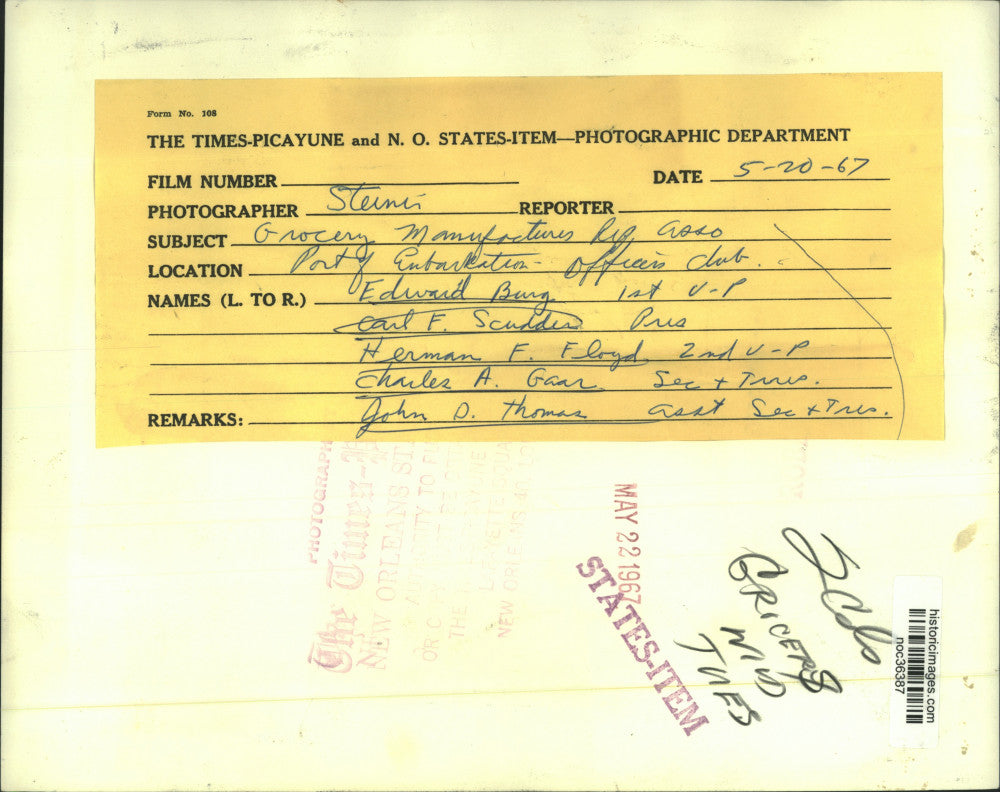 Form No. 108
THE TIMES-PICAYUNE and N. O. STATES-ITEM—PHOTOGRAPHIC DEPARTMENT
FILM NUMBER
DATE 5-20-67
PHOTOGRAPHER Steiner
REPORTER
SUBJECT Grocery Manufactures Rep Asso
LOCATION Port of Embarkation - Officers Club.
NAMES (L. TO R.) Edward Burg 1st V-P
Carl F. Scudder Pres
Herman F. Floyd 2nd V-P
Charles A. Gaar Sec + Tres.
REMARKS: John D. Thomas asst Sec + Tres.
PHOTOGRAPH
The Times-
NEW ORLEANS ST
AUTHORITY TO
OR C
THE
LAFAYETTE SQUA
NEW ORLEANS 40, LO
MAY 22 1967
STATES-ITEM
2 Col
MID
TUES
historicimages.com
noc36387